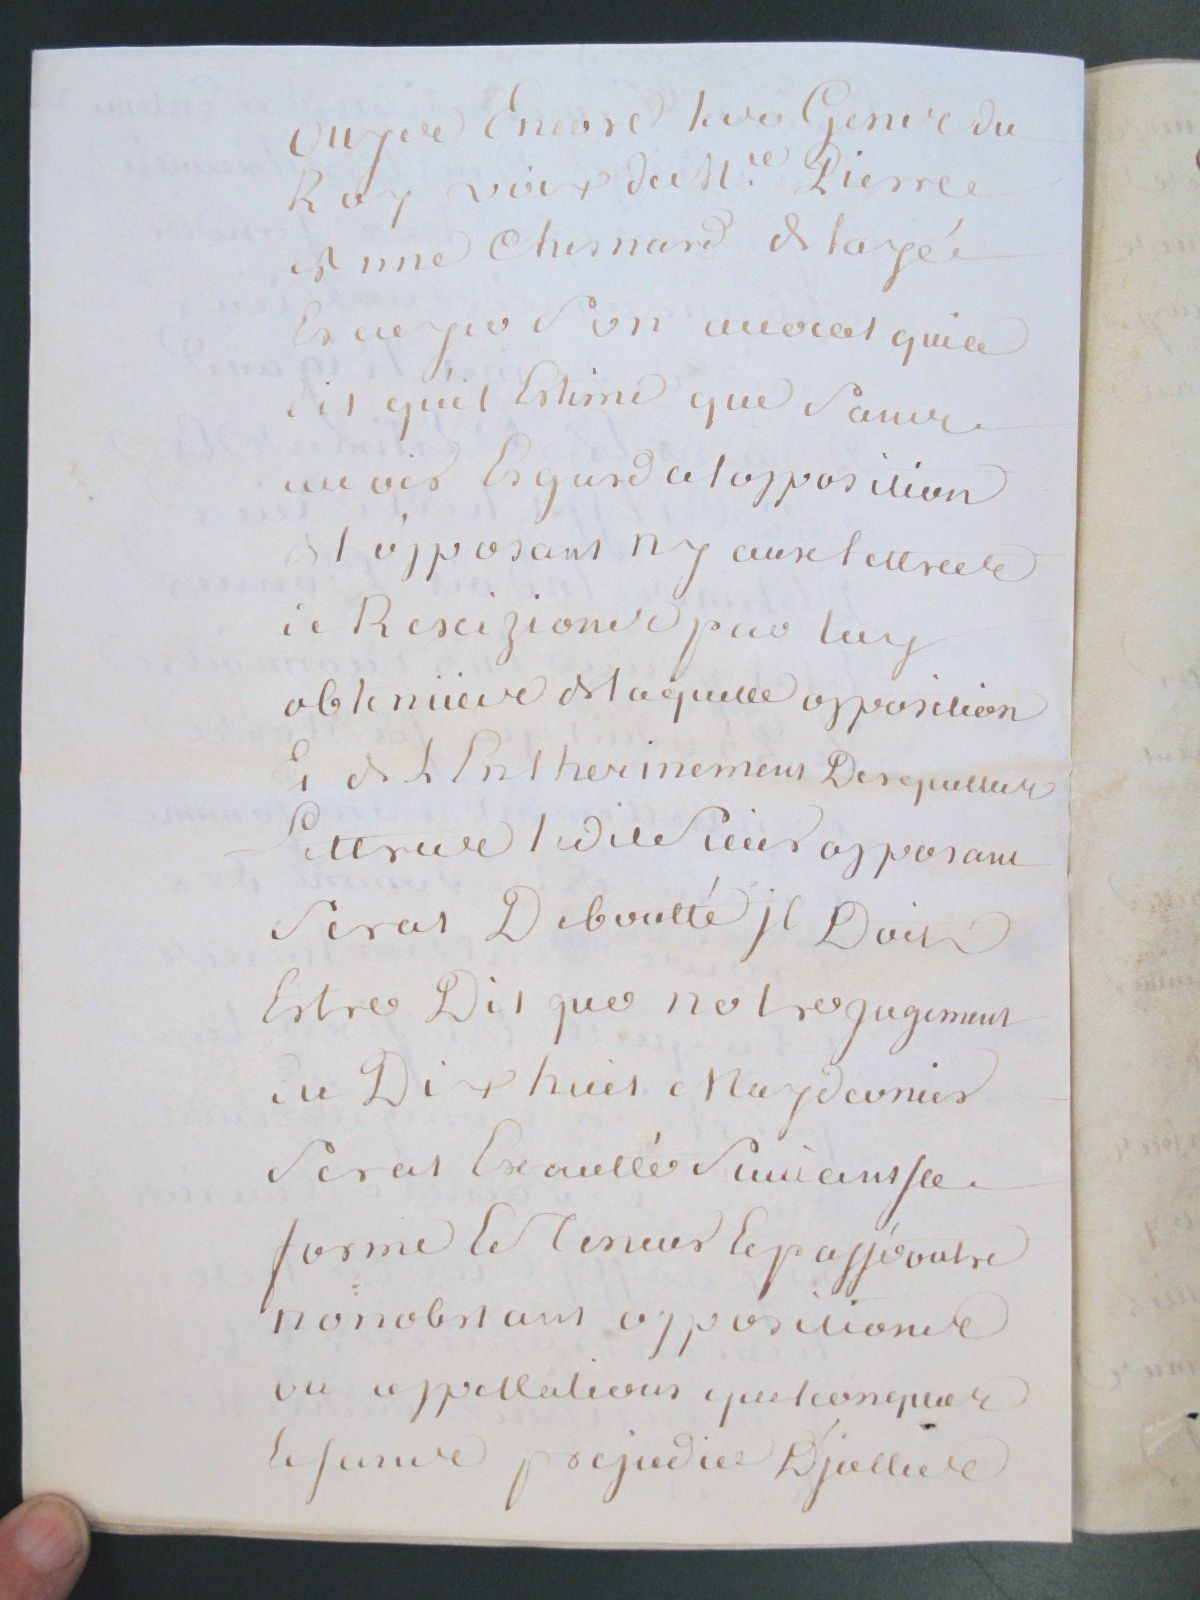 ouyes Encore les Gens du
Roy voix de Me Pierre
Chesnard de layée
Escuyer Son avocat qui a
dit qu'il Estime que Sans
avoir Esgard a lopposition
de l'opposant ny aux lettres
de Rescizions par luy
obtenües de laquelle opposition
Et de L'Entherinement Desquelles
Lettres ledit Sieur opposant
Serat Deboutté jl Doit
Estre Dit que notre jugement
du Dix huit May dernier
Serat Exœcutté Suivant sa
forme Et Teneur Et passé outre
nonobstant oppositions
ou appellations quelconques
Et sans prejudice D'jcelles